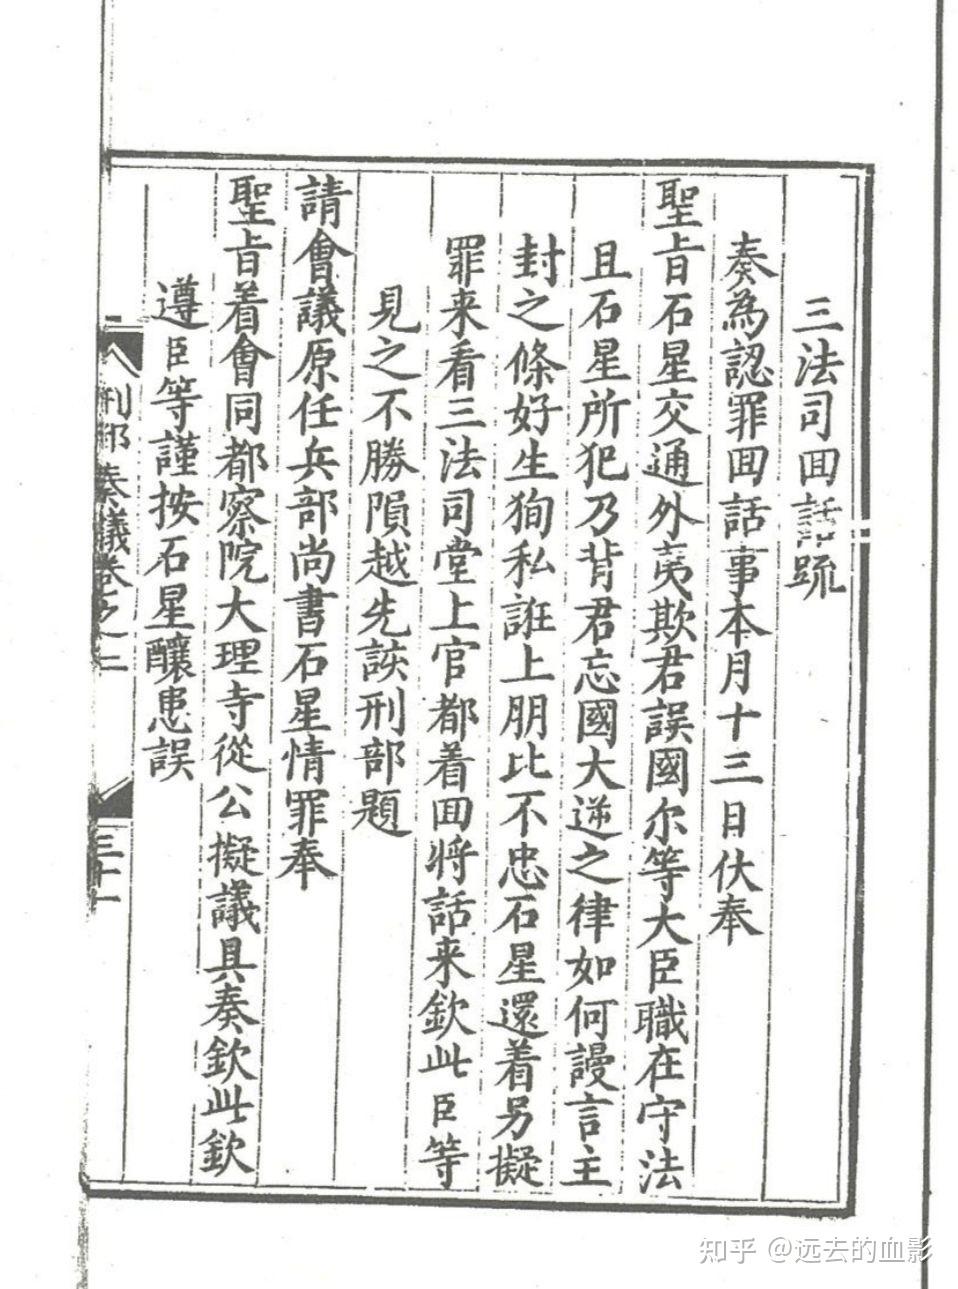 三法司囬話疏
奏為認罪囬話事本月十三日伏奉
聖旨石星交通外夷欺君誤國尔等大臣職在守法
且石星所犯乃背君忘國大逆之律如何謾言主
封之條好生狥私誑上朋比不忠石星還着另擬
罪来看三法司堂上官都着囬將話来欽此臣等
見之不勝隕越先該刑部題
請會議原任兵部尚書石星情罪奉
聖旨着會同都察院大理寺從公擬議具奏欽此欽
遵臣等謹按石星釀患誤
刑部奏議卷之二
三十一
知乎 @远去的血影